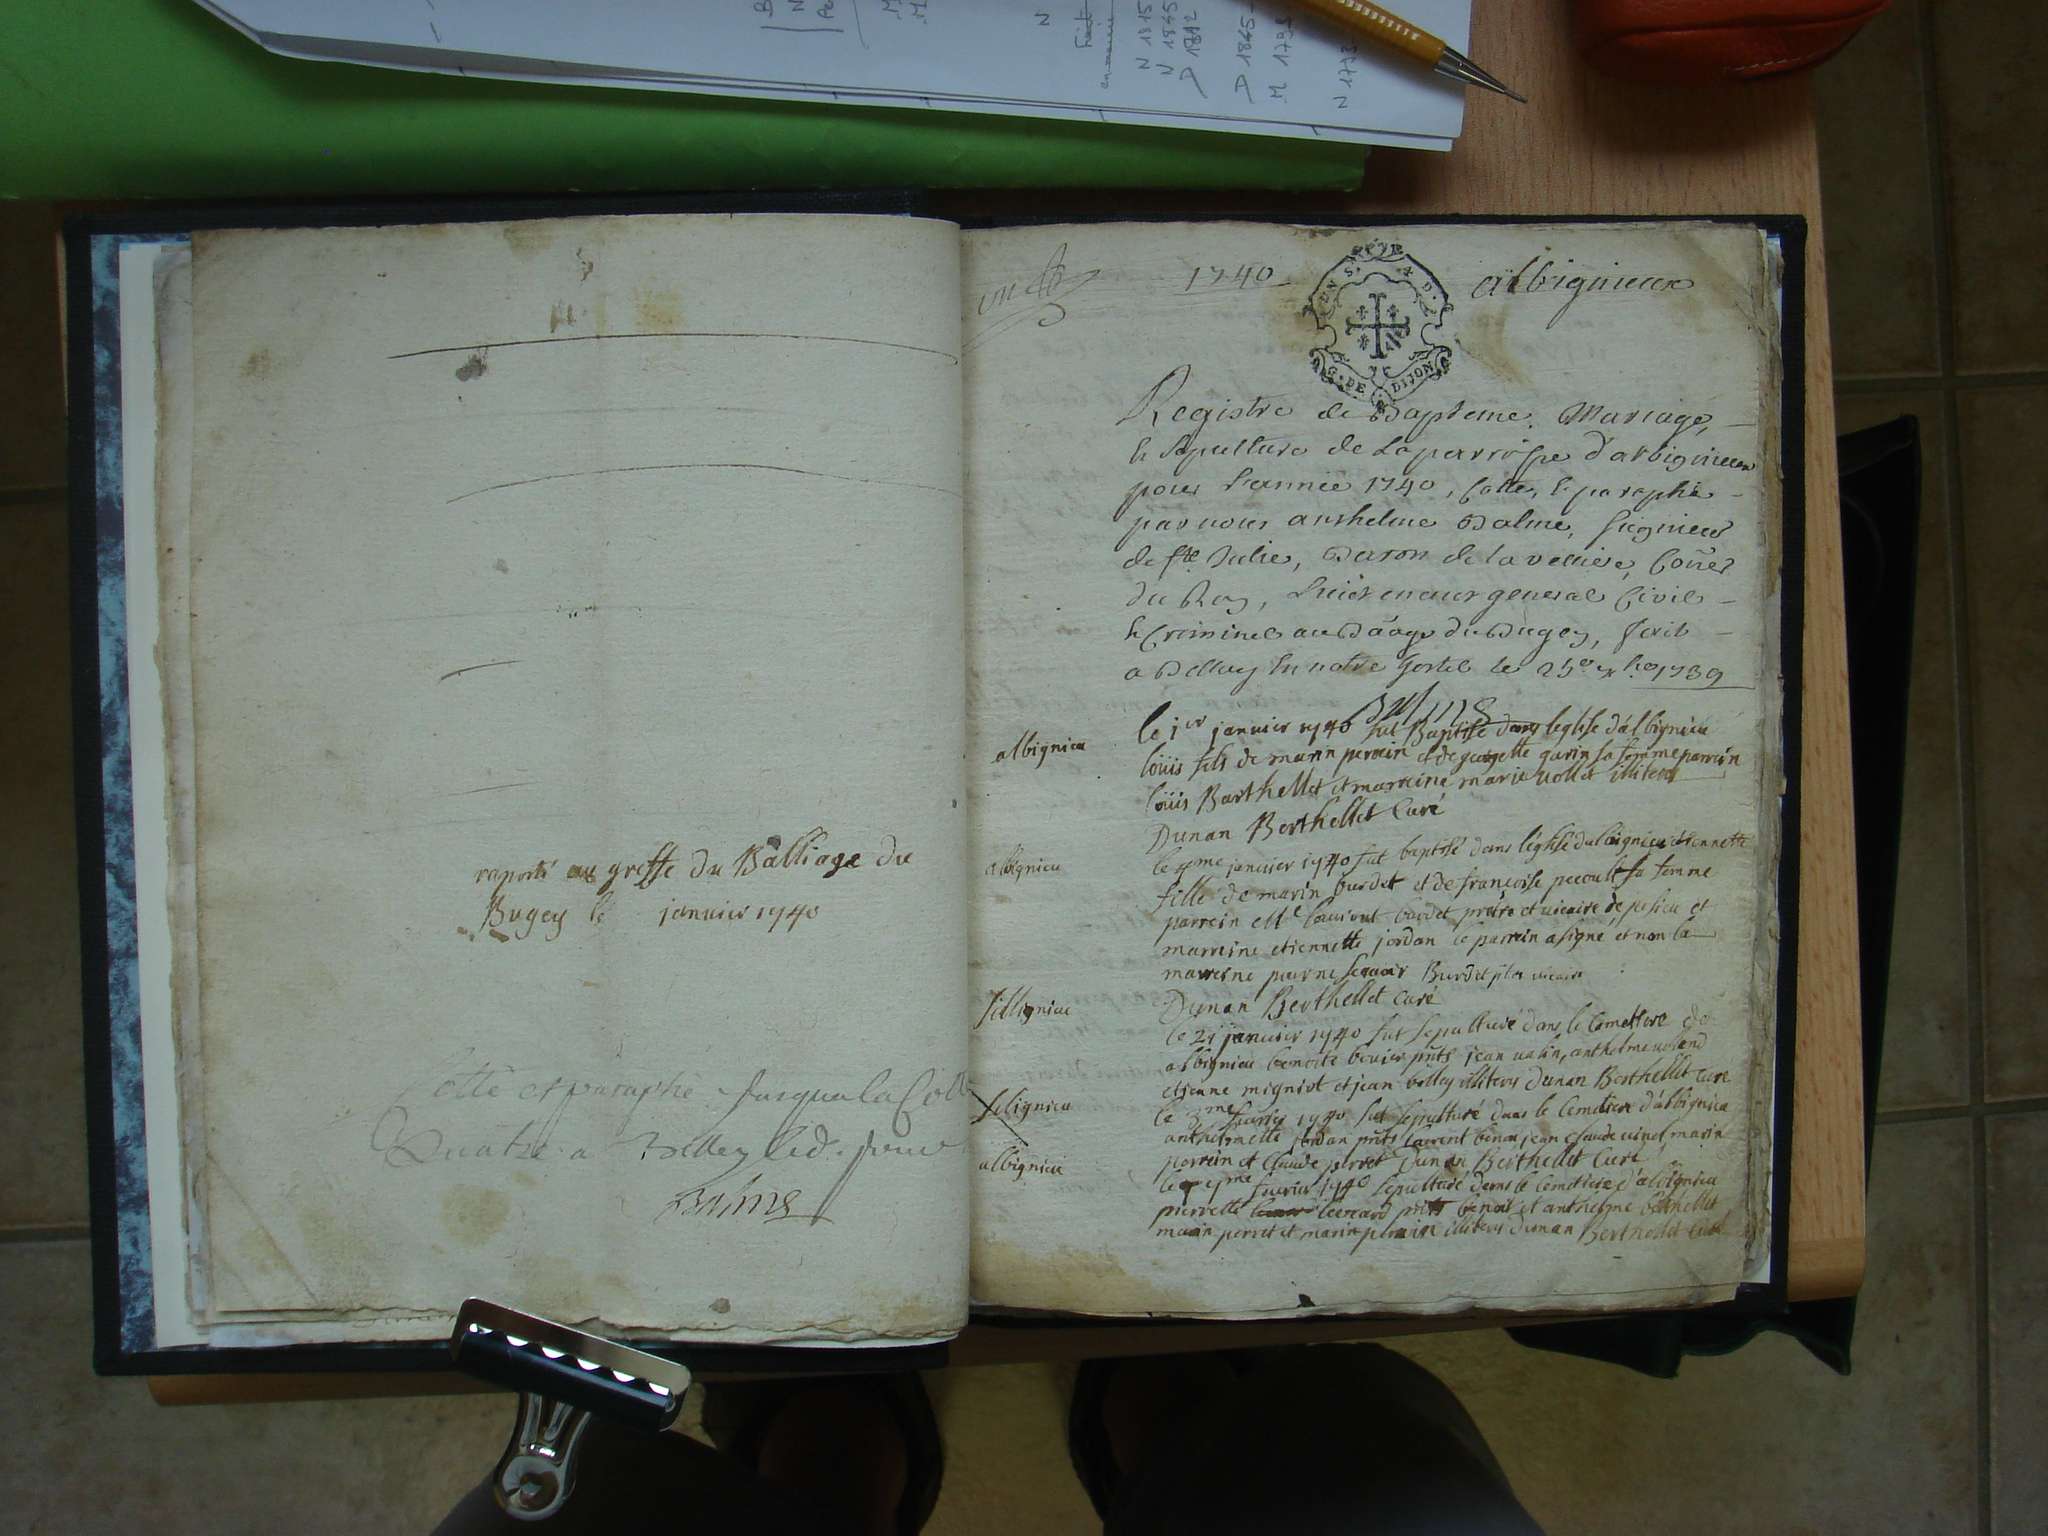 N 1815
N 1845
D 1812
D 1845
M 1705
N 1773
raporté au greffe du Balliage du
Bugey le janvier 1740
Cotté et paraphé Jusqua la Cotte
Quatre a Belley led. jour
Balme
1740
albignieux
G. DE DIJON
Registre de Bapteme, Mariage,
et Sepulture de La parroisse d'albignieux
pour l'année 1740, Cotté, et paraphé
par nous anthelme Balme, seigneur
de Ste Julie, Baron de la velliere, Coner
du Roy, Lieutenant general Civil
et Criminel au Baage du Bugey, fait
a Belley en notre hostel le 25e xbre 1739
Balme
albignieu
le 1er janvier 1740 fut Baptisé dans léglise d'albignieu
loüis fils de marin perrin et de georgette garin sa femme parrein
loüis Barthellet et marreine marie vollet illiterés
Dunan Berthellet Curé
albignieu
le janvier 1740 fut baptisé dans léglise dalbignieu etiennette
fille de marin burdet et de francoise pecoult sa femme
parrein Me laurent burdet prétre et vicaire de et
marreine etiennette jordan le parrein a signé et non la
marreine pour ne scavoir Burdet ptre vicaire
Dunan Berthellet Curé
sillignieu
le 21 janvier 1740 fut sepulturé dans le Cemettere de
albignieu benoite bovier pnts jean valin, anthelme
etienne migniot et jean belley illiterés Dunan Berthellet Curé
silignieu
le 3me fevrier 1740 fut sepulturé dans le Cemetiere d'albignieu
anthelmette jordan pnts laurent jean claude vinet marin
perrein et Claude perret Dunan Berthellet Curé
albignieu
le fevrier 1740 sepulturé dans le Cemetiere d'albignieu
pierrette pnts benoit et anthelme berthellet
marin perret et marin perrein illiterés dunan Berthellet Curé